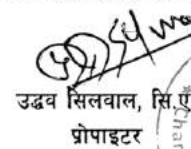 उद्धव सिलवाल, सि.ए.
प्रोपाइटर